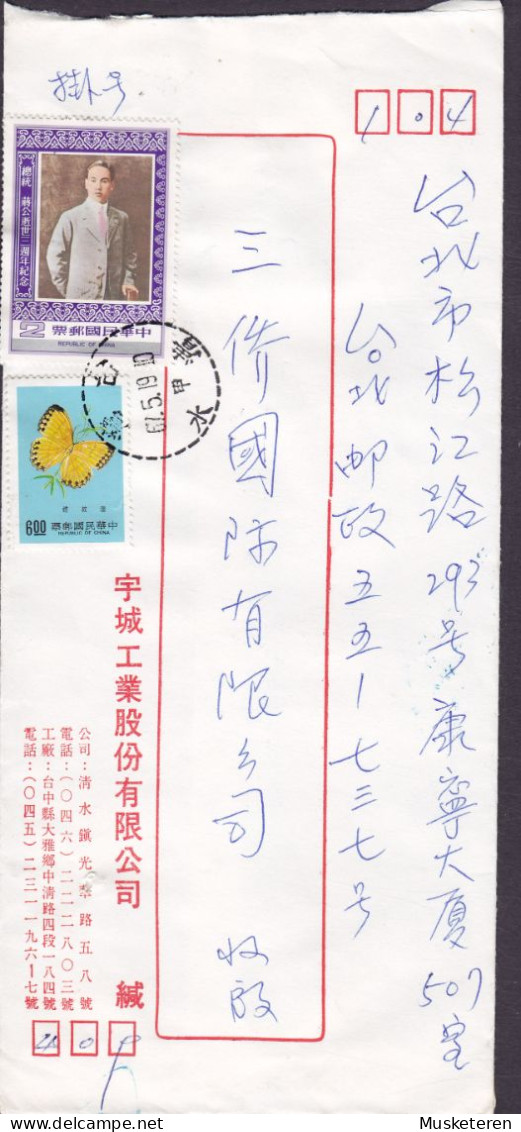 掛号
104
台北市松江路293号康寧大廈507室
台北邮政五五一七三七号
三侨國际有限公司 收啟
總統 蔣公逝世三週年紀念
中華民國郵票
2
REPUBLIC OF CHINA
67.5.19.10
甲
清水
中華民國郵票
6.00
REPUBLIC OF CHINA
宇城工業股份有限公司 緘
公司：清水鎮光華路五八號
電話：(〇四六)二二二八〇三號
工廠：台中縣大雅鄉中清路四段一八四號
電話：(〇四五)二三一一九六1七號
© Musketeren
www.delcampe.net/Musketeren